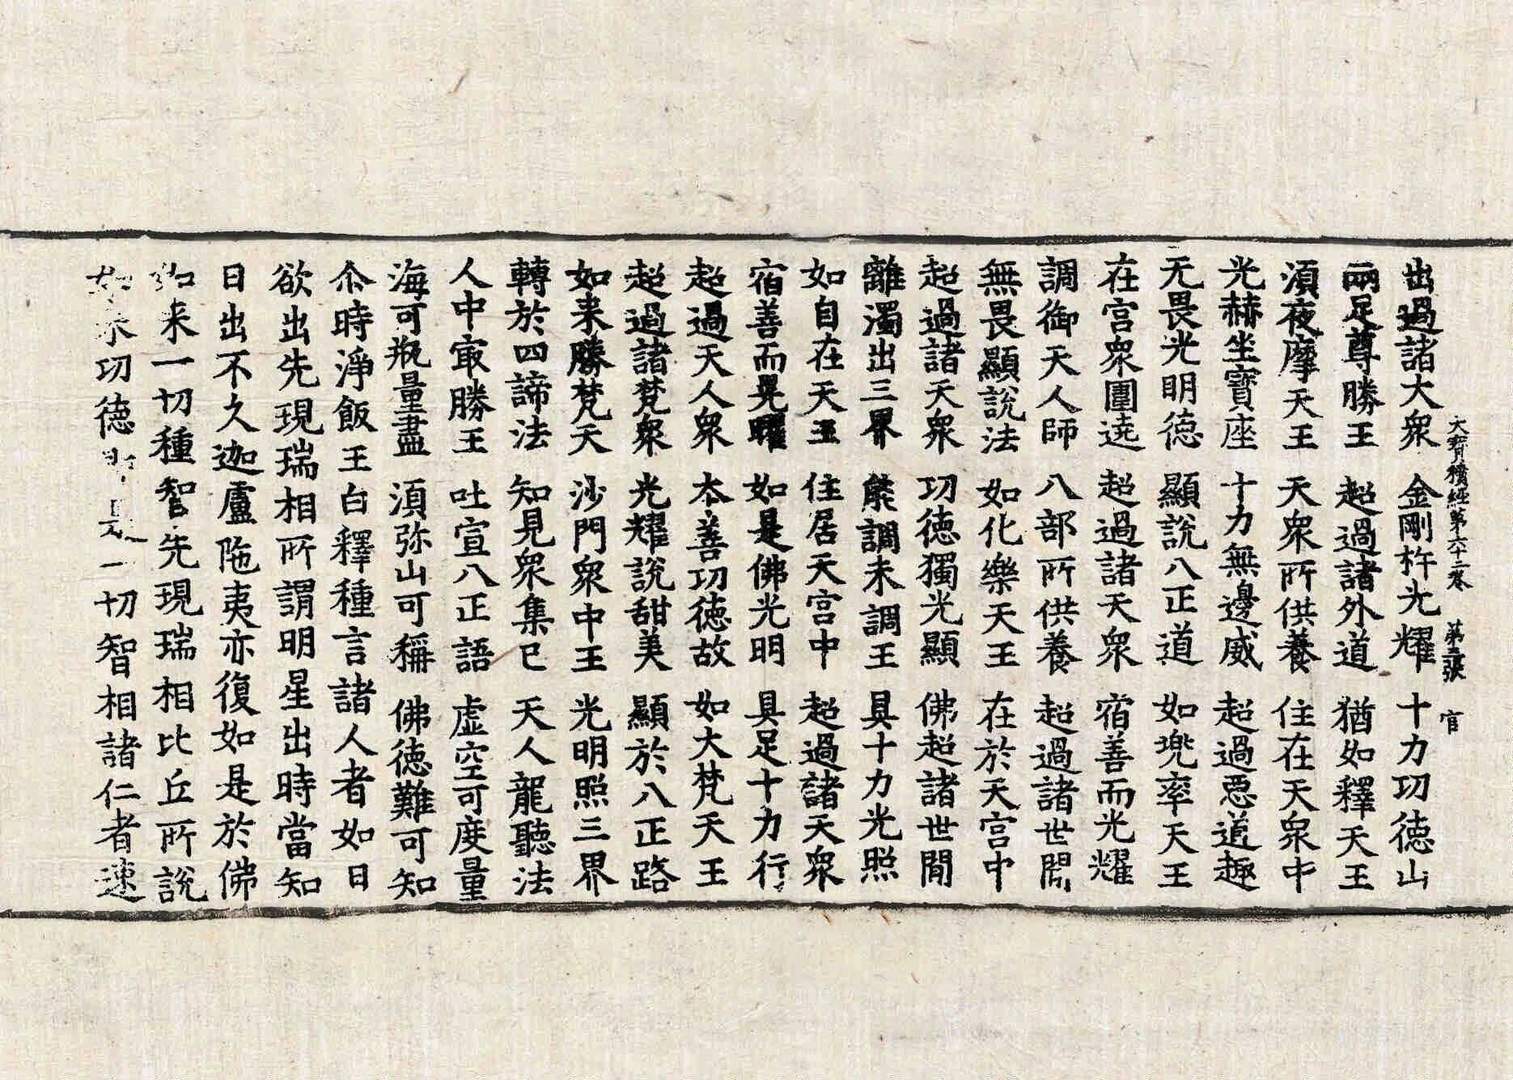 大寶積經第六十二卷 第三張 官
出過諸大衆 金剛杵光耀 十力功德山
兩足尊勝王 超過諸外道 猶如釋天王
湏夜摩天王 天衆所供養 住在天衆中
光赫坐寶座 十力無邊威 超過惡道趣
无畏光明德 顯說八正道 如兜率天王
在宮衆圍遶 超過諸天衆 宿善而光耀
調御天人師 八部所供養 超過諸世閒
無畏顯說法 如化樂天王 在於天宮中
超過諸天衆 功德獨光顯 佛超諸世閒
離濁出三界 能調未調王 具十力光照
如自在天王 住居天宮中 超過諸天衆
宿善而晃曜 如是佛光明 具足十力行
超過天人衆 夲善功德故 如大梵天王
超過諸梵衆 光耀說甜美 顯於八正路
如来勝梵天 沙門衆中王 光明照三界
轉於四諦法 知見衆集已 天人龍聽法
人中㝡勝王 吐宣八正語 虛空可度量
海可瓶量盡 湏弥山可稱 佛德難可知
尒時淨飯王白釋種言諸人者如日
欲出先現瑞相所謂明星出時當知
日出不久迦盧陁夷亦復如是於佛
如来一切種智先現瑞相比丘所說
如来功德 是一切智相諸仁者速